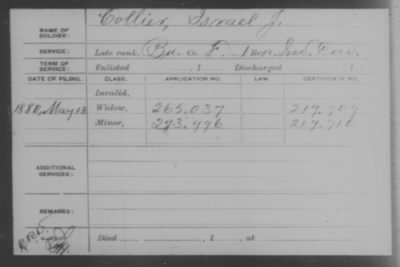 NAME OF SOLDIER: Collier, Israel J.
SERVICE: Late rank, Co. F, 1 Reg't Ind. Cav.
TERM OF SERVICE: Enlisted , 1 Discharged , 1
DATE OF FILING. CLASS. APPLICATION NO. LAW. CERTIFICATE NO.
Invalid,
May 13 Widow, 265.037
Minor, 273.996
ADDITIONAL SERVICES:
REMARKS:
Died , 1 , at